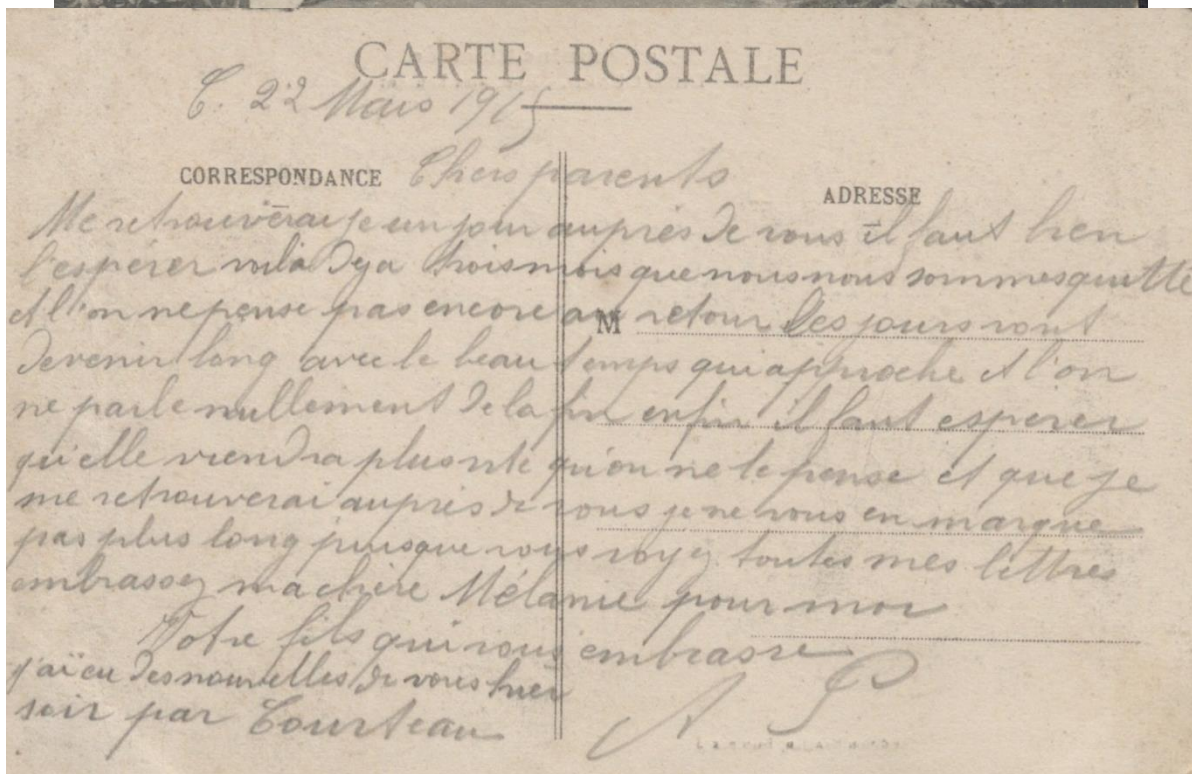 CARTE POSTALE
C. 22 Mars 1915
CORRESPONDANCE
Chers parents
ADRESSE
Me retrouverai je un jour auprès de vous il faut bien
l'espérer voila deja trois mois que nous nous sommes quitté
et l'on ne pense pas encore au retour les jours vont
M
devenir long avec le beau temps qui approche et l'on
ne parle nullement de la fin enfin il faut espérer
qu'elle viendra plus vite qu'on ne le pense et que je
me retrouverai auprès de vous je ne vous en marque
pas plus long puisque vous voyez toutes mes lettres
embrassez ma chère Mélanie pour moi
Votre fils qui vous embrasse
j'ai eu des nouvelles de vous hier
soir par Courteau
A P